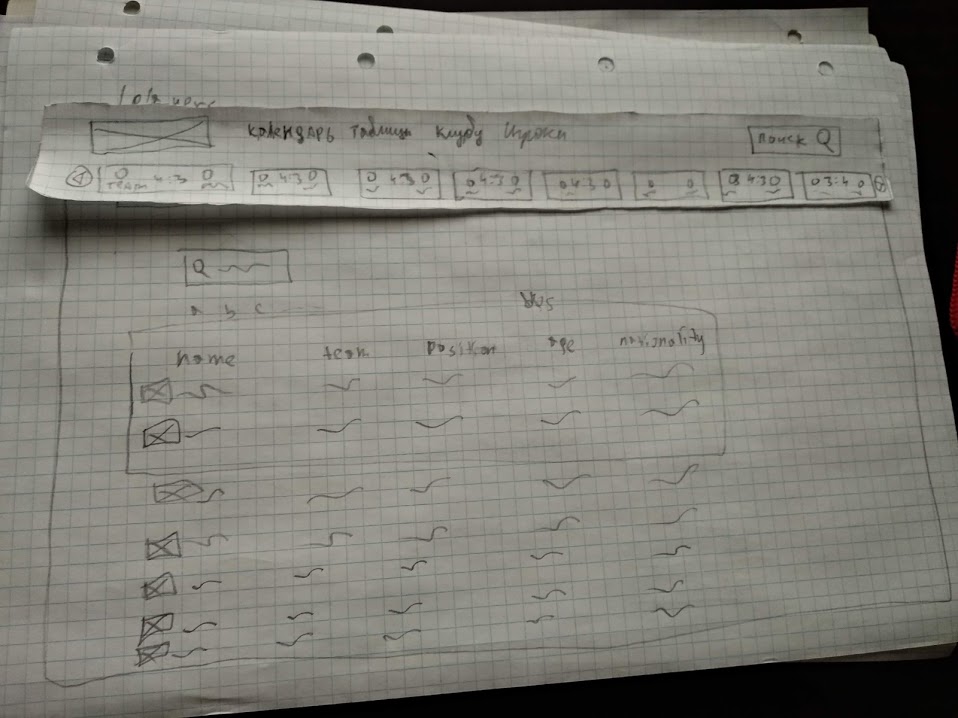 календарь таблицы клубы Игроки поиск
team 4:3 4:30 4:30 4:30 4:30 4:30 03:4
a b c
name team position age nationality